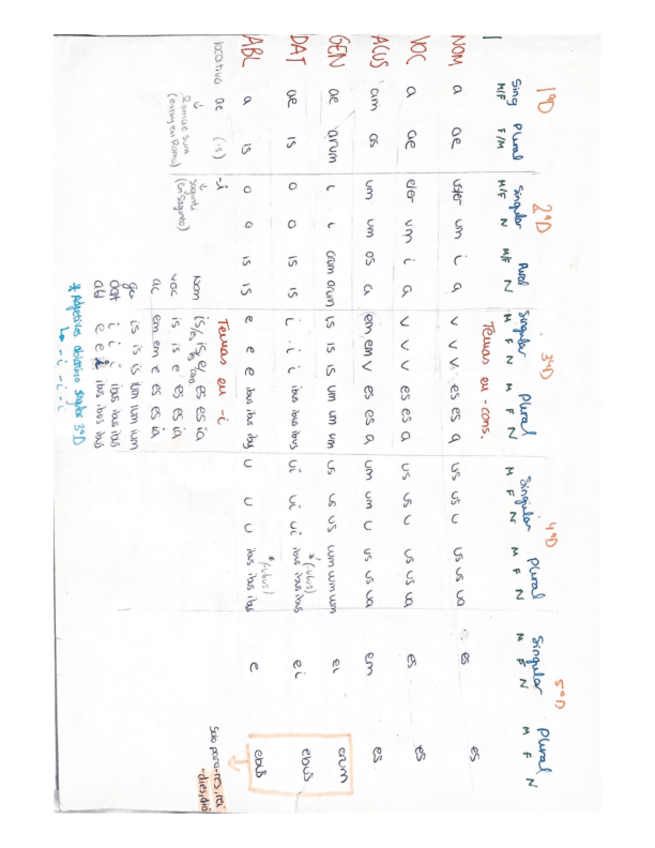 1ªD 2ªD 3ªD 4ªD 5ªD
Sing Plural Singular Plural Singular Plural Singular Plural Singular Plural
M/F F/M M/F N M/F N M F N M F N M F N M F N M F N M F N
Temas en - cons.
NOM a ae us/er um i a v v v es es a us us u us us ua es es
VOC a ae e/er um i a v v v es es a us us u us us ua es es
ACUS am as um um os a em em v es es a um um u us us ua em es
GEN ae arum i i orum orum is is is um um um us us us uum uum uum ei erum
*(ubus)
DAT ae is o o is is i i i ibus ibus ibus ui ui ui ibus ibus ibus ei ebus
*(ubus)
ABL a is o o is is e e e ibus ibus ibus u u u ibus ibus ibus e ebus
locativo ae (is) -i Temas en -i
Romae sum sagunti
(estoy en Roma) (en Sagunto)
Solo para -res, rei
-dies, diei
Nom is/es is/es e/ es es ia
voc is is e es es ia
ac em em e es es ia
gen is is is ium ium ium
Dat i i i ibus ibus ibus
abl e e i ibus ibus ibus
* Adjetivos ablativo singular 3ªD
-i -i -i